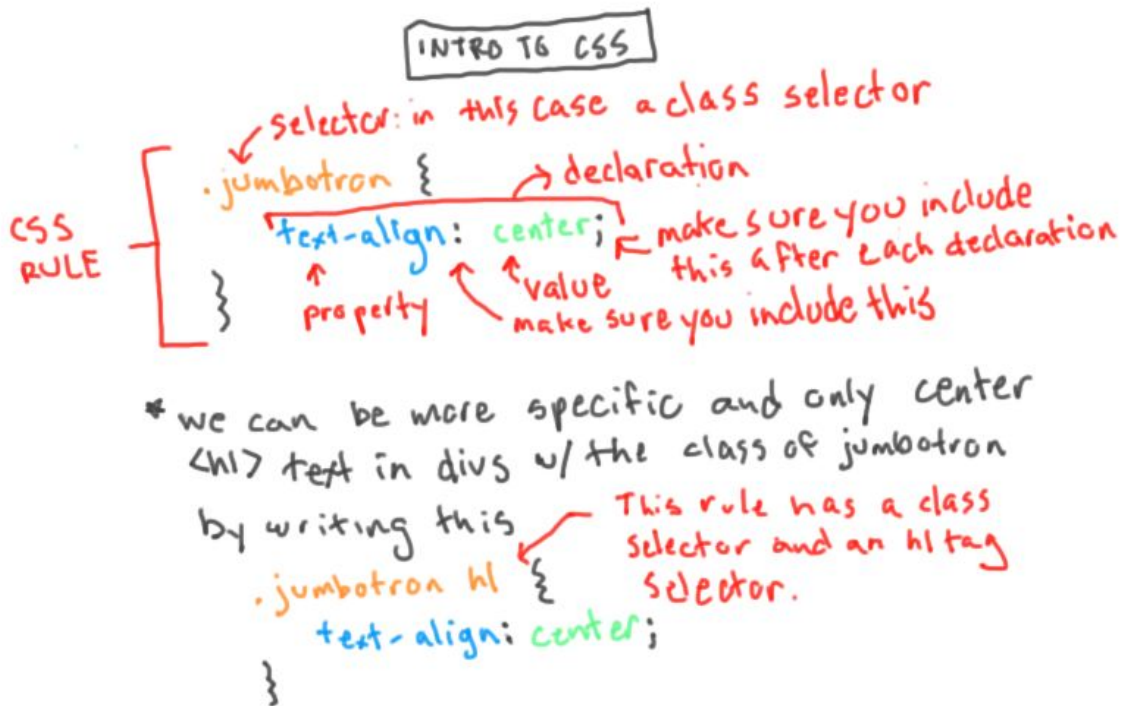 INTRO TO CSS
selector: in this case a class selector
.jumbotron {
declaration
CSS
RULE
text-align: center;
make sure you include
this after each declaration
property
value
make sure you include this
}
* we can be more specific and only center
<h1> text in divs w/ the class of jumbotron
by writing this
This rule has a class
selector and an h1 tag
selector.
.jumbotron h1 {
text-align: center;
}